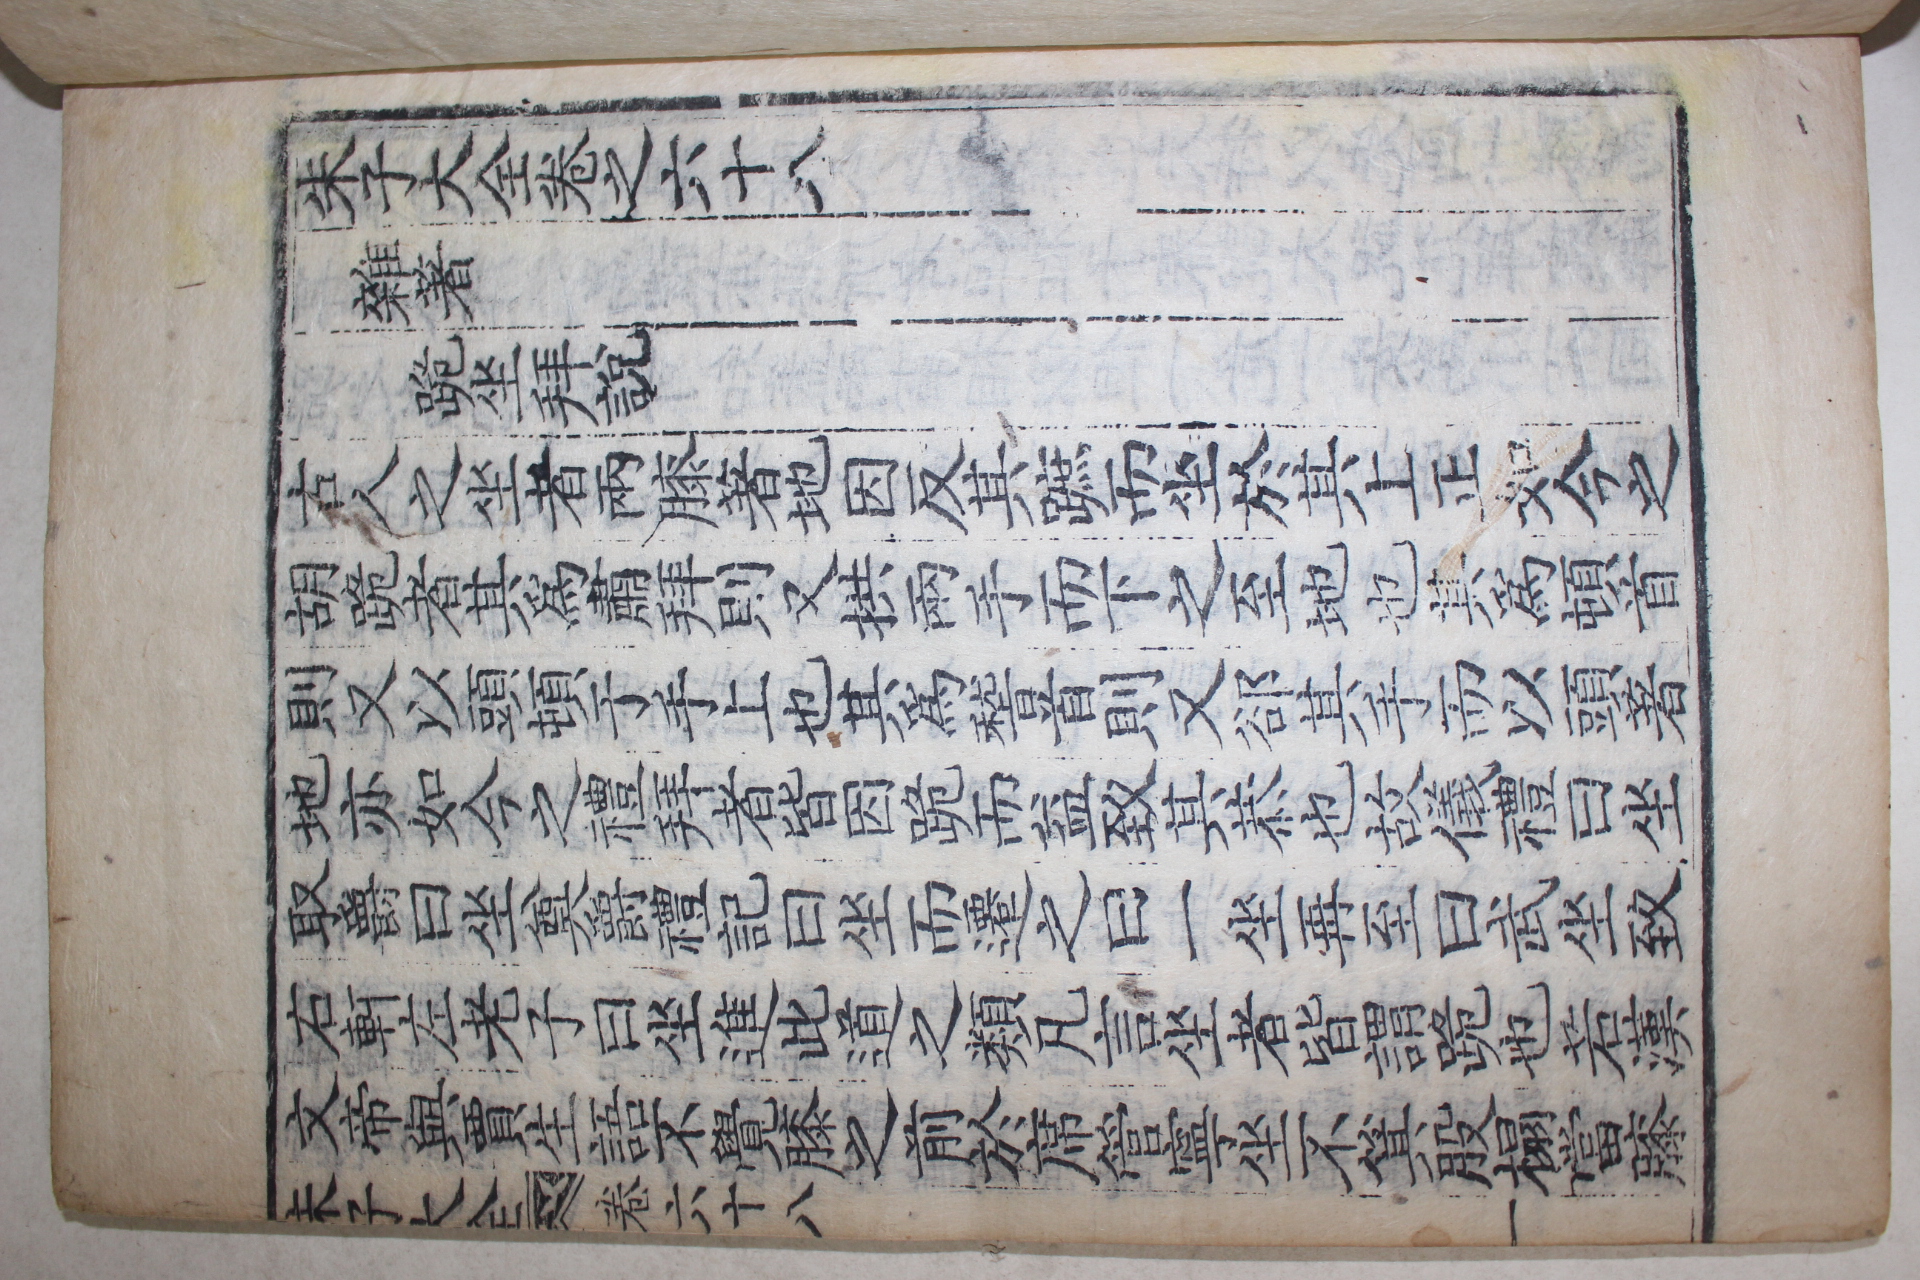 朱子大全卷之六十八
雜著
跪坐拜說
古人之坐者兩膝著地因反其蹠而坐於其上正如今之
胡跪者其為肅拜則又拱兩手而下之至地也其為頓首
則又以頭頓于手上也其為稽首則又却其手而以頭著
地亦如今之禮拜者皆因跪而益致其恭也故儀禮曰坐
取爵曰坐奠爵禮記曰坐而遷之曰一坐再至曰武坐致
右軒左老子曰坐進此道之類凡言坐者皆謂跪也若漢
文帝與賈生語不覺膝之前於席管寧坐不箕股榻當膝
朱子大全 卷六十八 一